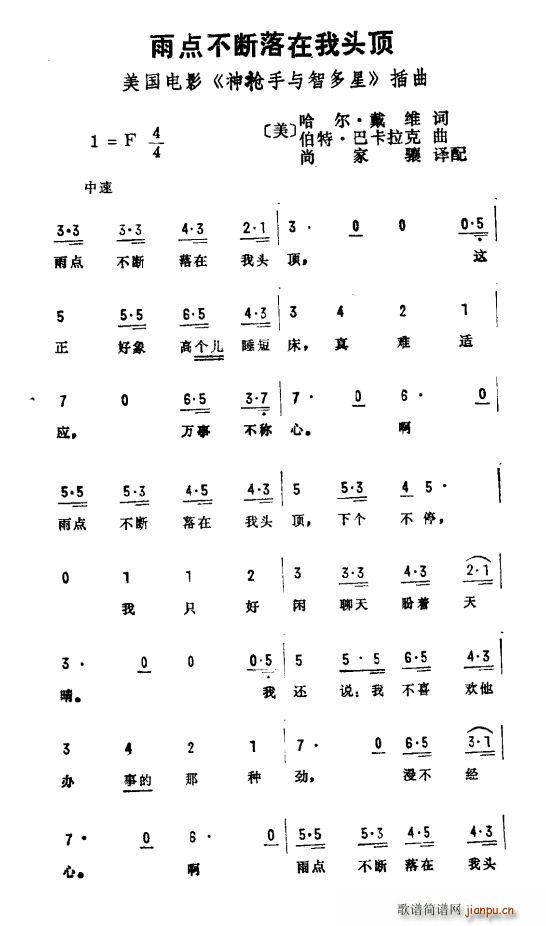 雨点不断落在我头顶
美国电影《神枪手与智多星》插曲
1=F 4/4
〔美〕哈尔·戴维 词
伯特·巴卡拉克 曲
尚家骧 译配
中速
3·3 3·3 4·3 2·1 | 3· 0 0 0·5 |
雨点 不断 落在 我头 顶, 这
5 5·5 6·5 4·3 | 3 4 2 1
正 好象 高个儿 睡短 床, 真 难 适
7 0 6·5 3·7 | 7· 0 6· 0
应, 万事 不称 心。 啊
5·5 5·3 4·5 4·3 | 5 5·3 4 5· |
雨点 不断 落在 我头 顶, 下个 不停,
0 1 1 2 | 3 3·3 4·3 2·1 |
我 只 好 闲 聊天 盼着 天
3· 0 0 0·5 | 5 5·5 6·5 4·3 |
晴。 我 还 说:我 不喜 欢他
3 4 2 1 | 7· 0 6·5 3·1 |
办 事的 那 种 劲, 漫不 经
7· 0 6· 0 | 5·5 5·3 4·5 4·3 |
心。 啊 雨点 不断 落在 我头
歌谱简谱网
jianpu.cn